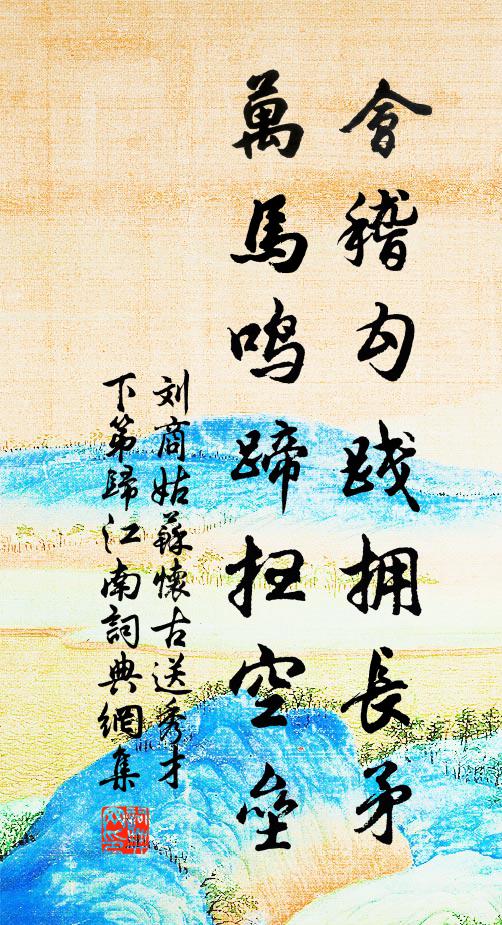 會稽勾践拥長矛
萬馬鸣蹄扫空壘
刘商姑蘇懷古送秀才
下第歸江南詞典網集